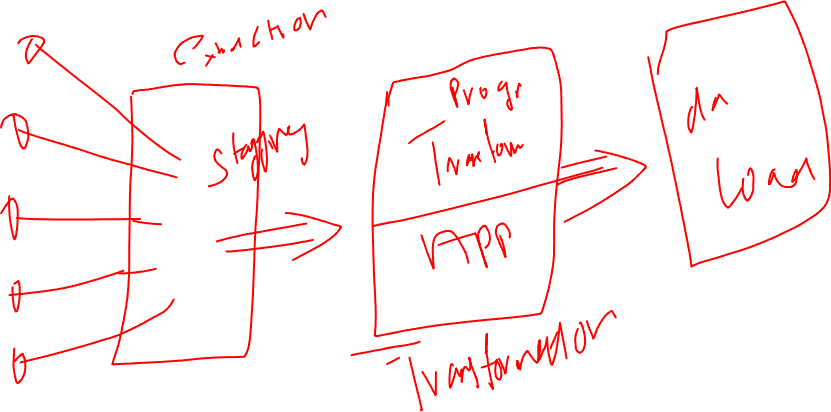 Extraction
Stagging
Progr
Transform
App
Transformation
Load